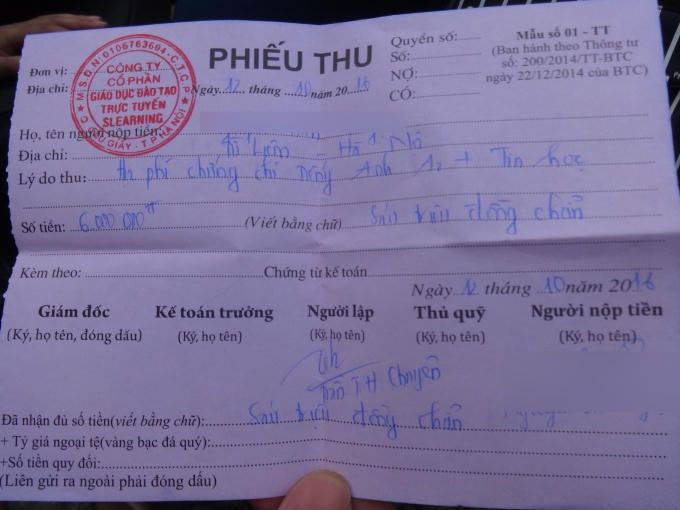 M.S.D.N: 0106763604-C.T.C.P
CÔNG TY
CỔ PHẦN
GIÁO DỤC ĐÀO TẠO
TRỰC TUYẾN
SLEARNING
GIẤY - T.P HÀ NỘI
Đơn vị:
Địa chỉ:
PHIẾU THU
Ngày 12 tháng 10 năm 2016
Quyển số:
Số:
NỢ:
CÓ:
Mẫu số 01 - TT
(Ban hành theo Thông tư
số: 200/2014/TT-BTC
ngày 22/12/2014 của BTC)
Họ, tên người nộp tiền:
Địa chỉ: - Hà Nô
Lý do thu: phí chứng chỉ tiếng Anh A2 + Tin học
Số tiền: 6.000.000đ (Viết bằng chữ) Sáu triệu đồng chẵn
Kèm theo: Chứng từ kế toán
Ngày 12 tháng 10 năm 2016
Giám đốc Kế toán trưởng Người lập Thủ quỹ Người nộp tiền
(Ký, họ tên, đóng dấu) (Ký, họ tên) (Ký, họ tên) (Ký, họ tên) (Ký, họ tên)
Trần TH Chuyên
Đã nhận đủ số tiền(viết bằng chữ): Sáu triệu đồng chẵn
+ Tỷ giá ngoại tệ(vàng bạc đá quý):
+Số tiền quy đổi:
(Liên gửi ra ngoài phải đóng dấu)